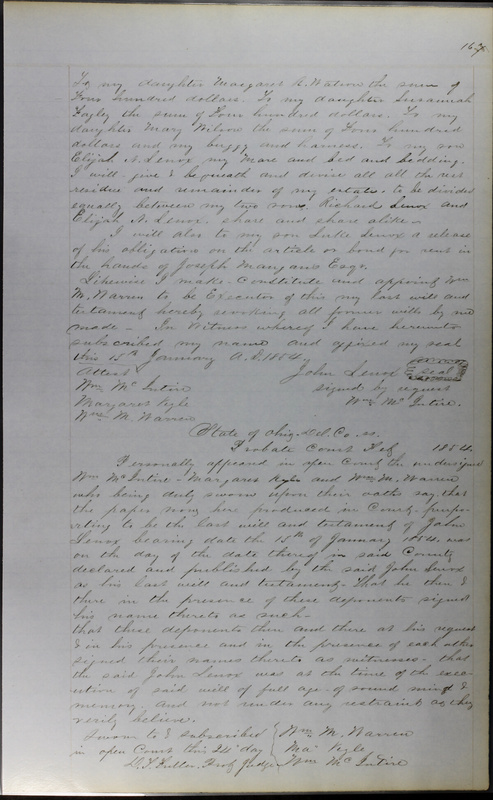 167
To my daughter Margaret A. Watson the sum of
Four hundred dollars. To my daughter Susannah
Fogley the sum of Four hundred dollars. To my
daughter Mary Wilson the sum of Four hundred
dollars and my buggy and harness. To my son
Elijah N. Lenox my Mare and bed and bedding.
I will give & bequeath and devise all all the rest
residue and remainder of my estate, to be divided
equally between my two sons, Richard Lenox and
Elijah N. Lenox. share and share alike –
I will also to my son Luke Lenox a release
of his obligation on the article or bond for rent in
the hands of Joseph Mangans Esqr.
Likewise I make Constitute and appoint Wm
M. Warren to be Executor of this my last will and
testament hereby revoking all former wills by me
made – In Witness whereof I have hereunto
subscribed my name and affixed my seal
this 15th January A.D. 1854.
Attest John Lenox seal
Wm Mc Intire signed by request
Margaret Kyle Wm Mc Intire.
Wm M. Warren
State of Ohio Del. Co. ss.
Probate Court Feb 1854.
Personally appeared in open Court the undersigned
Wm McIntire – Margaret Kyle and Wm M. Warren
who being duly sworn upon their oath say, that
the paper now here produced in Court – purpo-
rting to be the last will and testament of John
Lenox bearing date the 15th of January 1854 was
on the day of the date thereof in said County
declared and published by the said John Lenox
as his last will and testament – that he then &
there in the presence of these deponents signed
his name thereto as such –
that these deponents then and there at his request
& in his presence and in the presence of each other
signed their names thereto as witnesses – that
the said John Lenox was at the time of the exec-
ution of said will of full age – of sound mind &
memory and not under any restraint as they
verily believe.
Sworn to & subscribed Wm M. Warren
in open Court this 24 day Mat Kyle
D. T. Fuller Prob Judge Wm Mc Intire